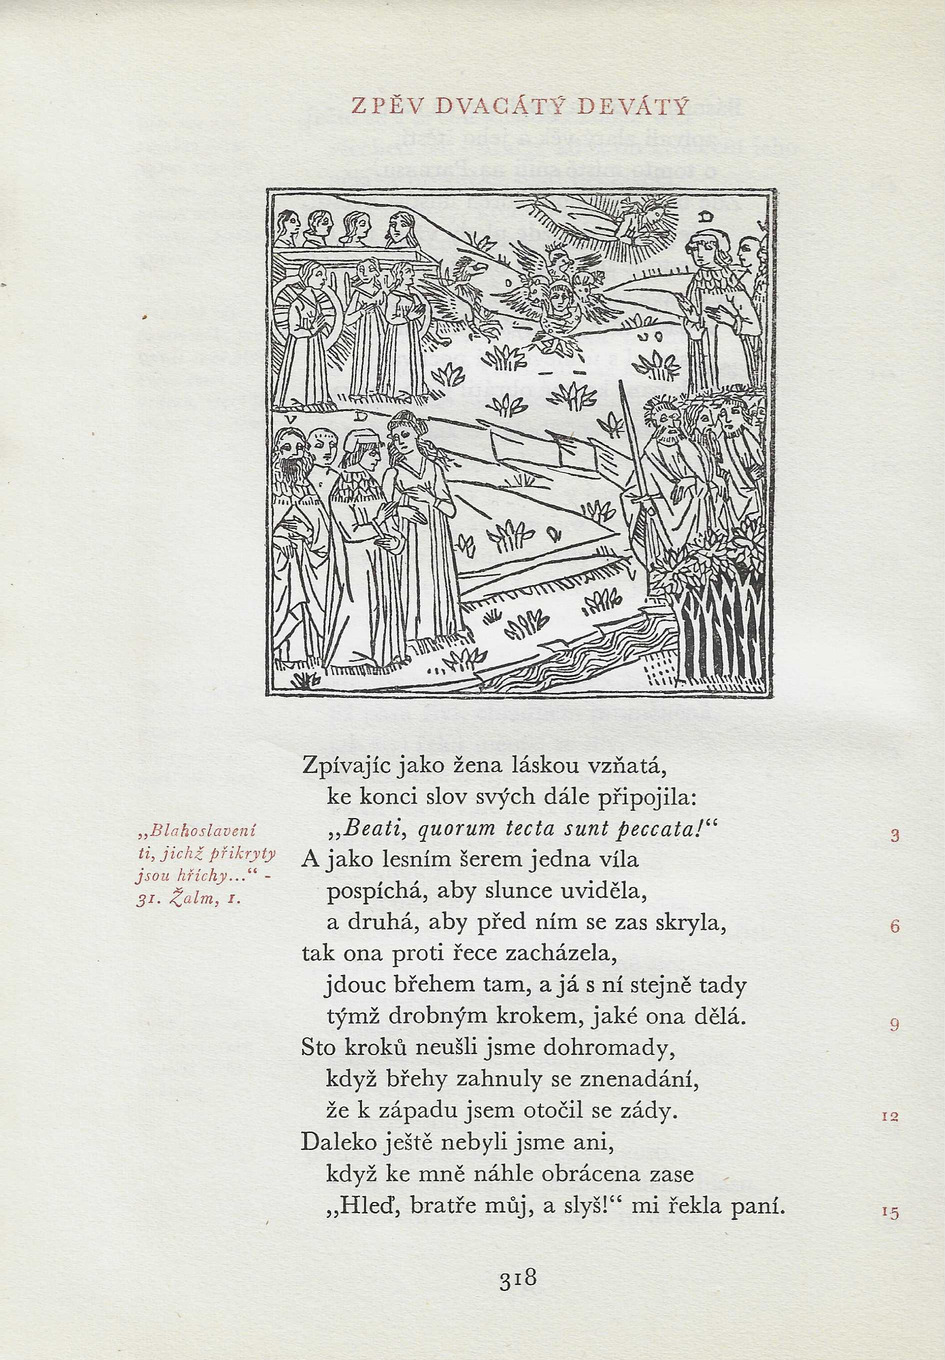 ZPĚV DVACÁTÝ DEVÁTÝ
D
V
V D
Zpívajíc jako žena láskou vzňatá,
ke konci slov svých dále připojila:
„Beati, quorum tecta sunt peccata!“
3
„Blahoslavení
ti, jichž přikryty
jsou hříchy...“ -
31. Žalm, 1.
A jako lesním šerem jedna víla
pospíchá, aby slunce uviděla,
a druhá, aby před ním se zas skryla,
6
tak ona proti řece zacházela,
jdouc břehem tam, a já s ní stejně tady
týmž drobným krokem, jaké ona dělá.
9
Sto kroků neušli jsme dohromady,
když břehy zahnuly se znenadání,
že k západu jsem otočil se zády.
12
Daleko ještě nebyli jsme ani,
když ke mně náhle obrácena zase
„Hleď, bratře můj, a slyš!“ mi řekla paní.
15
318